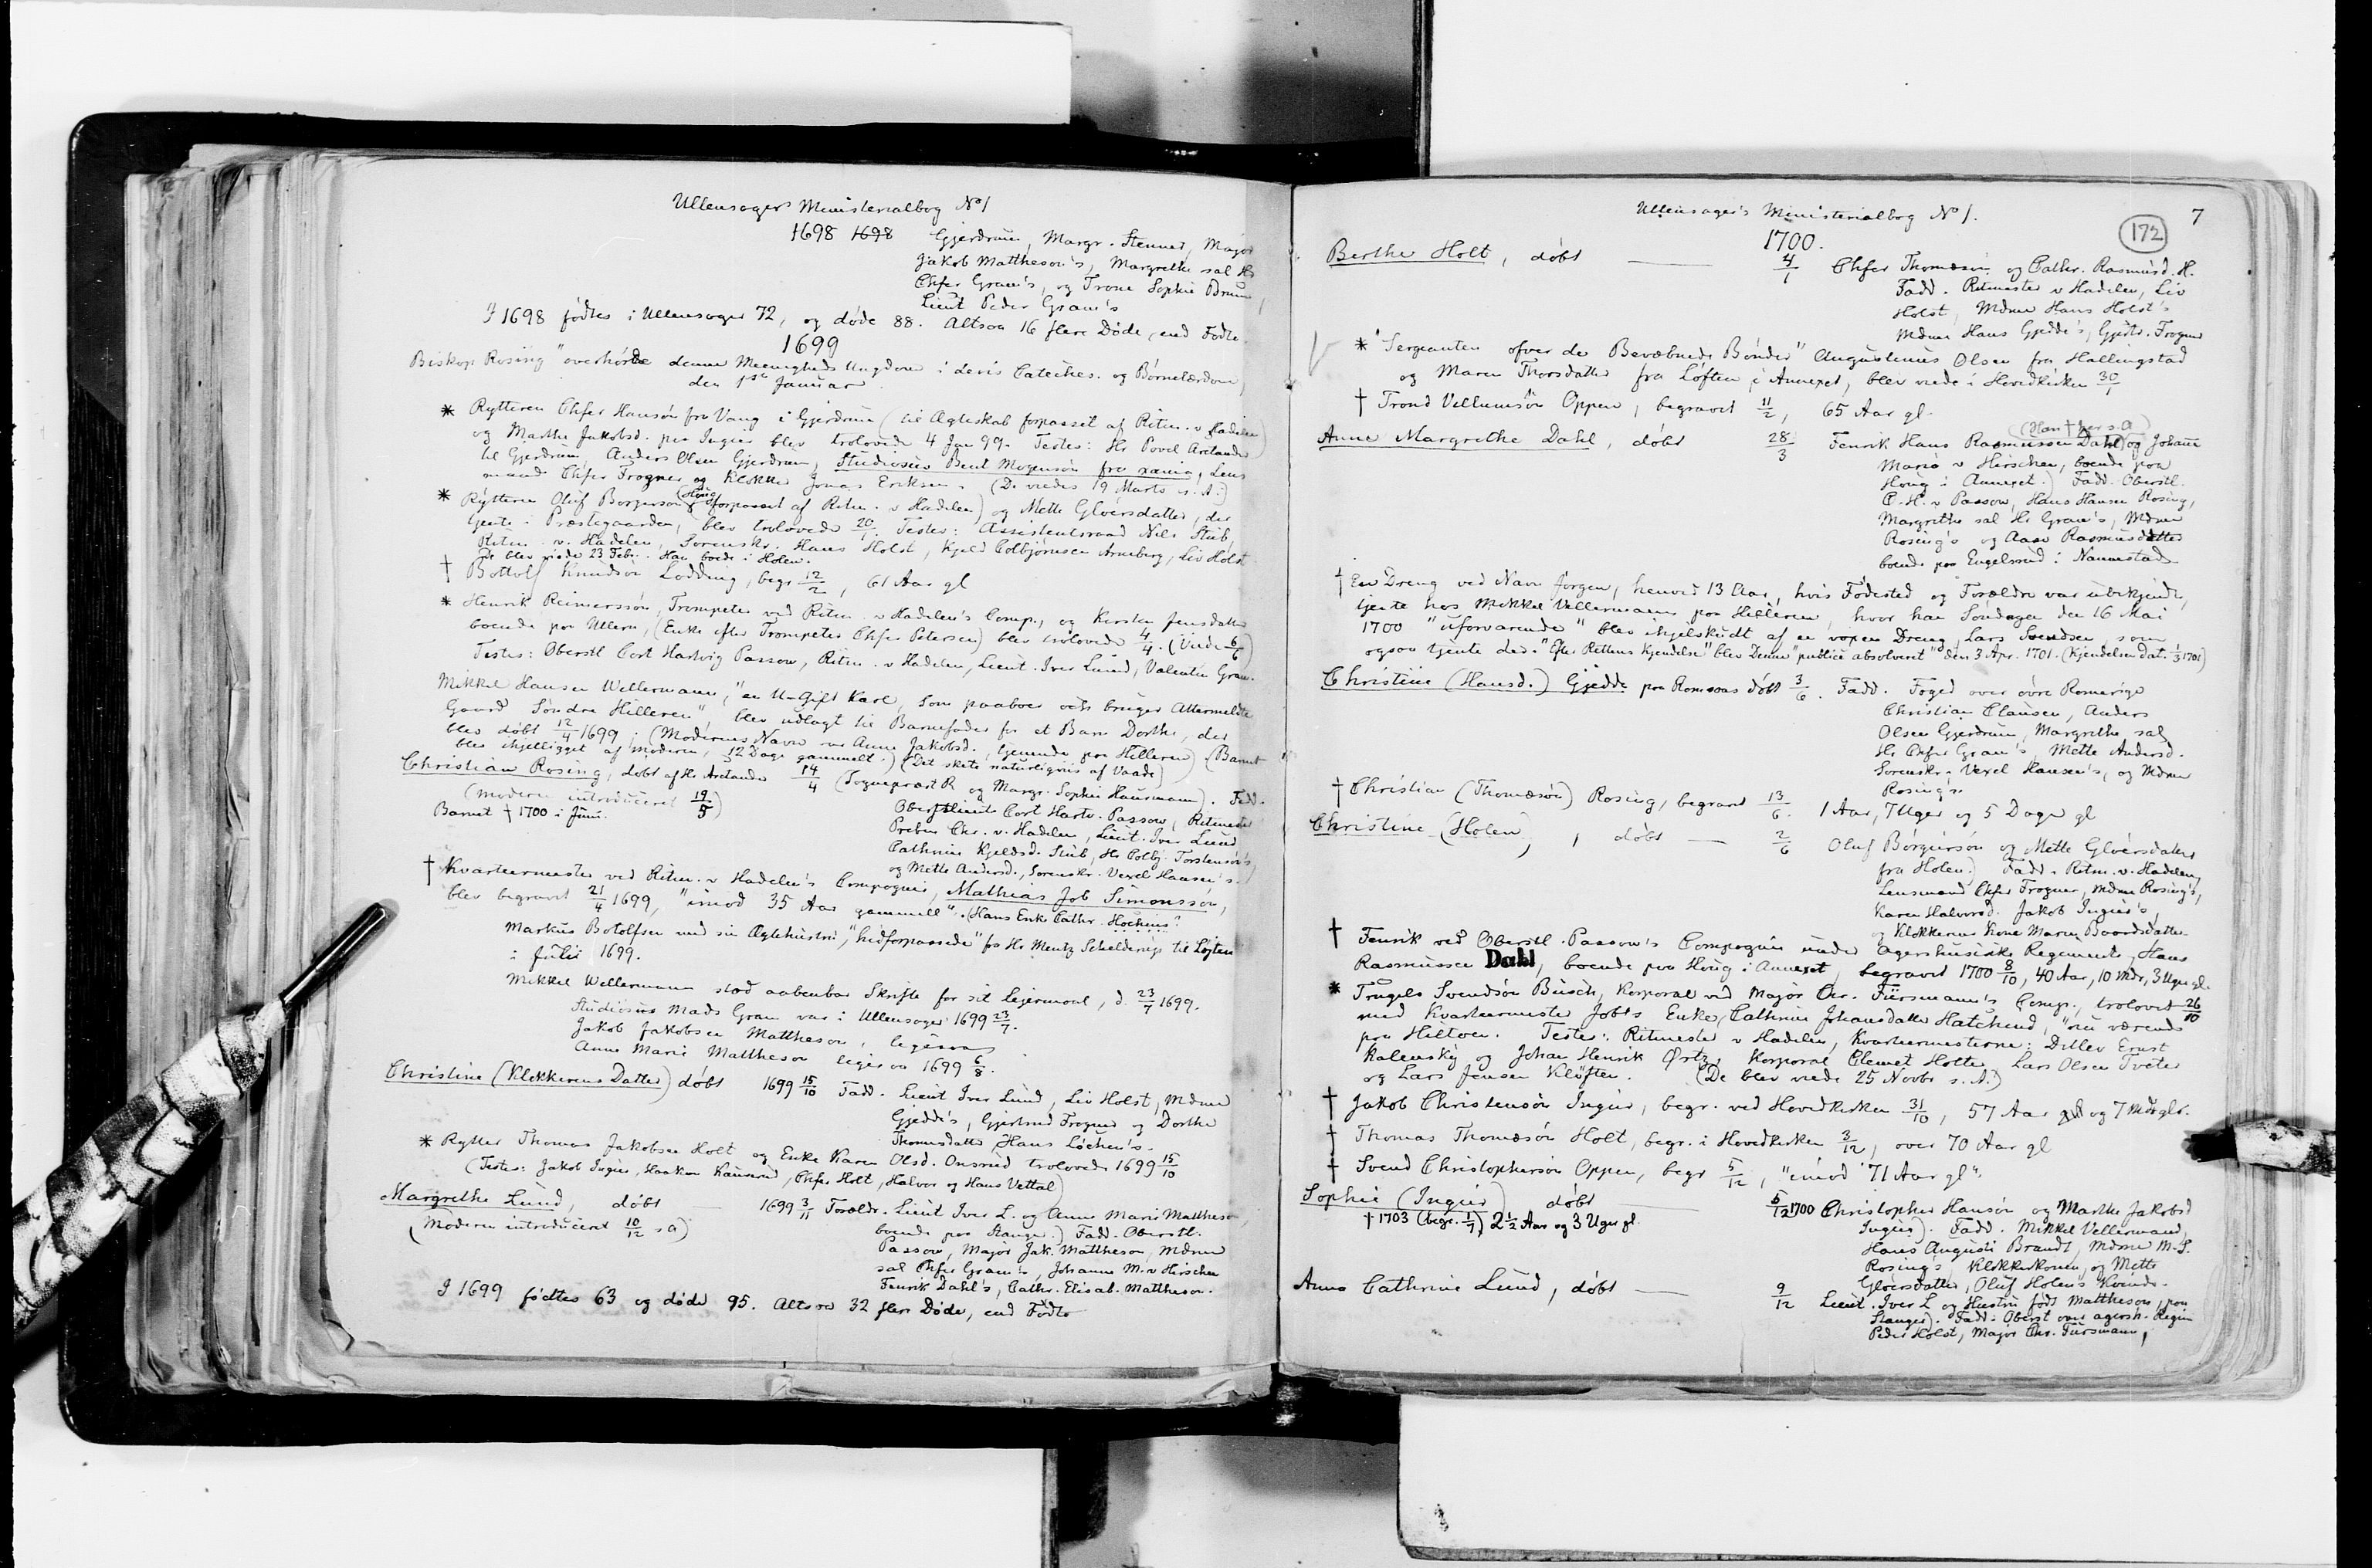 Ullensagers Ministerialbog No 1
1698 1698 Gjerdrum, Margr. Stenner, Major
Jakob Mattheson's, Margrethe sal Hr
Chfer Gram's, og Trone Sophie
Lieut Peder Gram's
I 1698 fødtes i Ullensager 72, og døde 88. Altsaa 16 flere Døde, end Fødte.
1699
Biskop Rosing "overhørde denne Meenigheds Ungdom i deris Cateches. og Børnelærdom,
den 1ste Januar
* Rytteren Chfer Hansøn fra Vang i Gjerdrum (til Ægteskab forpasset af Ritm. v Hadelen)
og Marthe Jakobsd. paa Ingier blev trolovede 4 Jan 99. Testes: Hr Povel Aretander
til Gjerdrum, Anders Olsen Gjerdrum, Studiosus Bent Mogensøn fra xania, Lens
mand Chfer Frogner og Klokker Jonas Eriksen. (De viedes 19 Marts s. A.)
* Rytteren Oluf Borgersøn (Houg) (forpasset af Ritm. v Hadelen) og Mette Gloersdatter, der
tjente i Præstegaarden, blev trolovede 20/1. Testes: Assistentsraad Nils Stub,
Ritm. v. Hadelen, Sorenskr. Hans Holst, Kjeld Colbjørnsen Arneberg, Liv Holst
De blev viede 23 Febr. Han boede i Holen.
† Bottolf Knudsøn Lodding, begr 12/2, 61 Aar gl
* Henrik Reimerssøn, Trompeter ved Ritm. v Hadelen's Comp., og Kirsten Jensdatter
boende paa Ullern, (Enke efter Trompeter Chfer Petersen) blev trolovede 4/4. (Viede 6/6)
Testes: Oberstl Cort Hartvig Passow, Ritm. v Hadelen, Lieut. Iver Lund, Valentin Gram.
Mikkel Hansen Wellermann, "en U-Gift Karl, som paaboer och bruger Attermeldte
Gaard Søndre Hilleren", blev udlagt til Barnefader for et Barn Dorthe, der
blev døbt 12/4 1699. (Moderens Navn var Anne Jakobsd., tjenende paa Hilleren) (Barnet
blev ihjelligget af moderen, 12 Dage gammelt.) (Det skete naturligviis af Vaade)
Christian Rosing, døbt af Hr Aretander 14/4 (Sognepræst R og Margr. Sophie Hausmann). Fadd.
(Moderen introduceret 19/5) Oberstlieut. Cort Hartv. Passow, Ritmester
Barnet † 1700 i Juni. Preben Chr. v. Hadelen, Lieut. Iver Lund
Cathrine Kjeldsd. Stub, Hr Colbj. Torstensøn's,
og Mette Andersd., Sorenskr. Vexel Hansen's.
† Kvarteermester ved Ritm. v Hadelen's Compagnie, Mathias Job Simonssøn,
blev begravet 21/4 1699, "imod 35 Aar gammell". (Hans Enke Cathr. Hochens?
Markus Botolfsen med sin Ægtehustru, "hidforpassede" fra Hr Mentz Schelderup til Løjten
i Julii 1699.
Mikkel Wellermann stod aabenbar Skrifte for sit Lejermaal, d. 23/7 1699.
Studiosus Mads Gram var i Ullensager 1699 23/7.
Jakob Jakobsen Mattheson, ligesaa
Anne Marie Mattheson ligesaa 1699 6/8.
Christine (Klokkerens Datter) døbt 1699 15/10 Fadd. Lieut Iver Lund, Liv Holst, Mdme
Gjedde's, Gjertrud Frogner og Dorthe
Thomasdatter, Hans Løchen's.
* Rytter Thomas Jakobsen Holt og Enke Karen Olsd. Onsrud trolovede 1699 15/10
(Testes: Jakob Ingier, Haakon Kaurerud, Chfer Holt, Halvor og Hans Vettal)
Margrethe Lund, døbt 1699 3/11 Foreldr. Lieut Iver L. og Anne Marie Mattheson,
(Moderen introduceret 10/12 s A) boende paa Stanger.) Fadd. Oberstl.
Passow, Major Jak. Mattheson, Mdme
sal Chfer Gram's, Johanne M. v Hirschen
Fenrik Dahl's, Cathr. Elisab. Mattheson.
I 1699 fødtes 63 og døde 95. Altsaa 32 flere Døde, end Fødte
Ullensager's Ministerialbog No 1. 7
172
1700.
Berthe Holt, døbt 4/1 Chfer Thomæsøn og Cathr. Rasmusd. H.
Fadd. Ritmester v Hadelen, Liv
Holst, Mdme Hans Holst's
Mdme Hans Gjedde's, Gjertr. Frogner
* "Sergeanten ofver de Bevæbnede Bønder" Augustinus Olsen fra Hallingstad
og Maren Thorsdatter fra Løften i Annexet, blev viede i Hovedkirken 30/1
† Trond Vellumsøn Oppen, begravet 11/2, 65 Aar gl.
(Han † her s. A)
Anne Margrethe Dahl, døbt 28/3 Fenrik Hans Rasmussen Dahl og Johanne
Maria v Hirschen, boende paa
Houg i Annexet.) Fadd. Oberstl.
C. H. v Passow, Hans Hansen Rosing,
Margrethe sal Hr Gram's, Mdme
Rosing's og Aase Rasmusdatter
boende paa Engelsrud i Nannestad
† En Dreng ved Navn Jørgen, henved 13 Aar, hvis Fødested og Forældre var ubekjendte,
tjente hos Mikkel Vellermann paa Hilleren, hvor han Søndagen den 16 Mai
1700 "uforvarende" blev ihjelskudt af en voxen Dreng, Lars Svendsen, som
ogsaa tjente der. "Efter Rettens Kjendelse" blev Denne "publicè absolveret" den 3 Apr. 1701. (Kjendelsen dat. 1/3 1701)
Christine (Hansd.) Gjedde paa Romsaas døbt 3/6. Fadd. Foged over øvre Romerige
Christian Clausen, Anders
Olsen Gjerdrum, Margrethe sal
Hr Chfer Gram's, Mette Andersd.
Sorenskr. Vexel Hansen's, og Mdme
Rosing's.
† Christian (Thomæsøn) Rosing, begravet 13/6. 1 Aar, 7 Uger og 5 Dage gl
Christine (Holen), døbt 2/6 Oluf Børgersøn og Mette Gloersdatter
fra Holen.) Fadd. Ritm. v. Hadelen,
Lensmand Chfer Frogner, Mdme Rosing's,
Karen Halvorsd. Jakob Ingier's,
og Klokkerens Kone Maren Baardsdatter
† Fenrik ved Oberstl. Passow's Compagnie under Agershusiske Regimente, Hans
Rasmussen Dahl, boende paa Houg i Annexet, begravet 1700 8/10, 40 Aar, 10 Mdr, 3 Uger gl.
* Trugels Svendsøn Busch, Korporal ved Major Chr. Fürsmann's Comp., trolovet 26/10
med Kvarteermester Jobts Enke, Cathrine Johansdatter Hatchend, "nu værende
paa Hiltoen. Testes: Ritmester v Hadelen, Kvarteermesterne: Detlev Ernst
Kalensky og Johan Henrik Ørtz, Korporal Clemet Holter, Lars Olsen Tveter
og Lars Jensen Kløften. (De blev viede 25 Novbr s. A.)
† Jakob Christensøn Ingier, begr. ved Hovedkirken 31/10, 57 Aar gl og 7 Mdr gl.
† Thomas Thomæsøn Holt, begr. i Hovedkirken 3/12, over 70 Aar gl
† Svend Christophersøn Oppen, begr 5/12, "imod 71 Aar gl".
Sophie (Ingier) døbt 5/12 1700 Christopher Hansøn og Marthe Jakobsd
† 1703 (begr. 1/7) 2 1/2 Aar og 3 Uger gl. Ingier). Fadd. Mikkel Vellermand,
Hans Augusti Brandt, Mdme M. S.
Rosing's, Klokkerkonen, og Mette
Gloersdatter, Oluf Holens Kvinde.
Anne Cathrine Lund, døbt 9/12 Lieut. Iver L og Hustru født Mattheson, paa
Stanger). Fadd: Oberst over agersh. Regim
Peder Holst, Major Chr. Fürsmann,